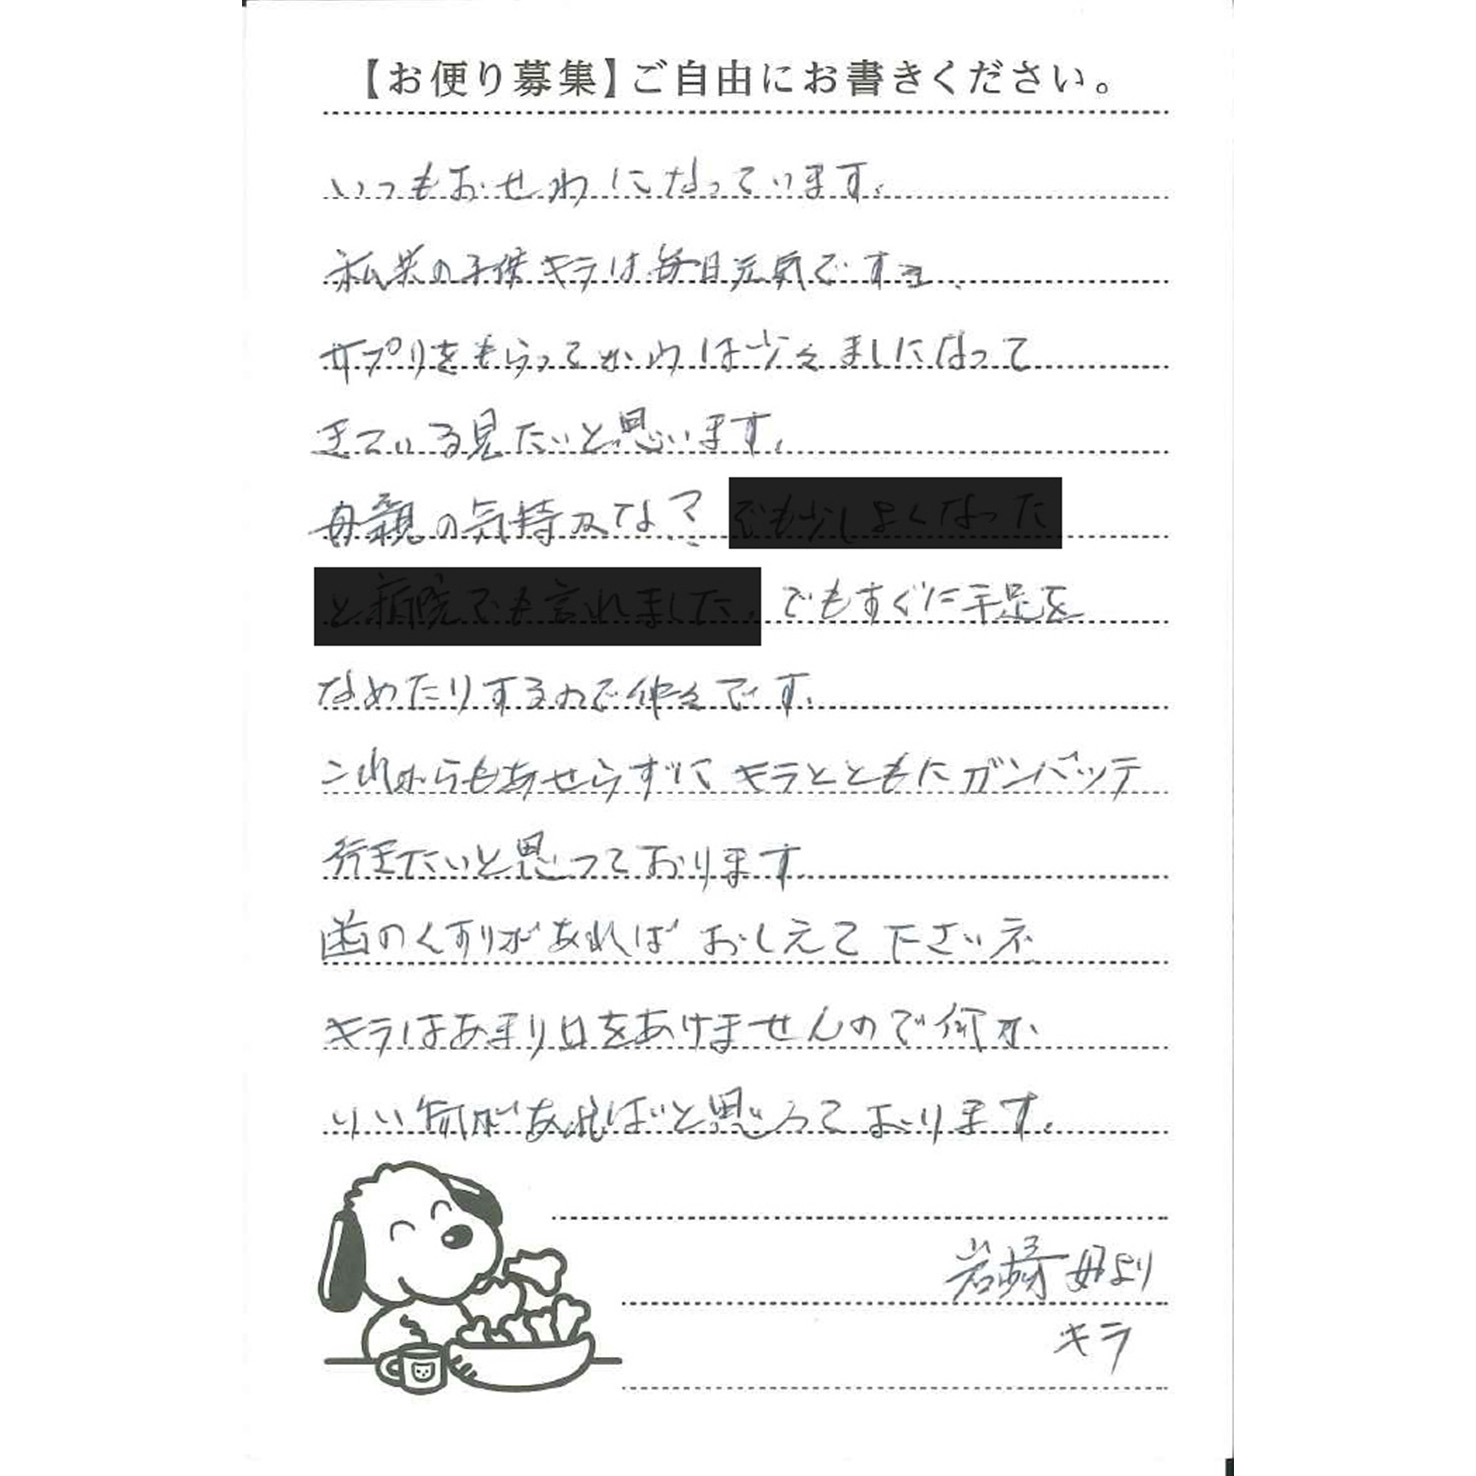 【お便り募集】ご自由にお書きください。
いつもおせわになっています。
私共の子供キラは毎日元気ですヨ、
サプリをもらってからは少々ましになって
きている見たいと思います。
母親の気持及な?
でもすぐに手足を
なめたりするので仲々です。
これからもあせらずに キラとともにガンバッテ
行きたいと思っております
歯のくすりがあれば おしえて 下さいネ
キラはあまり口をあけませんので何か
いい何があればと思っております。
岩崎 より
キラ